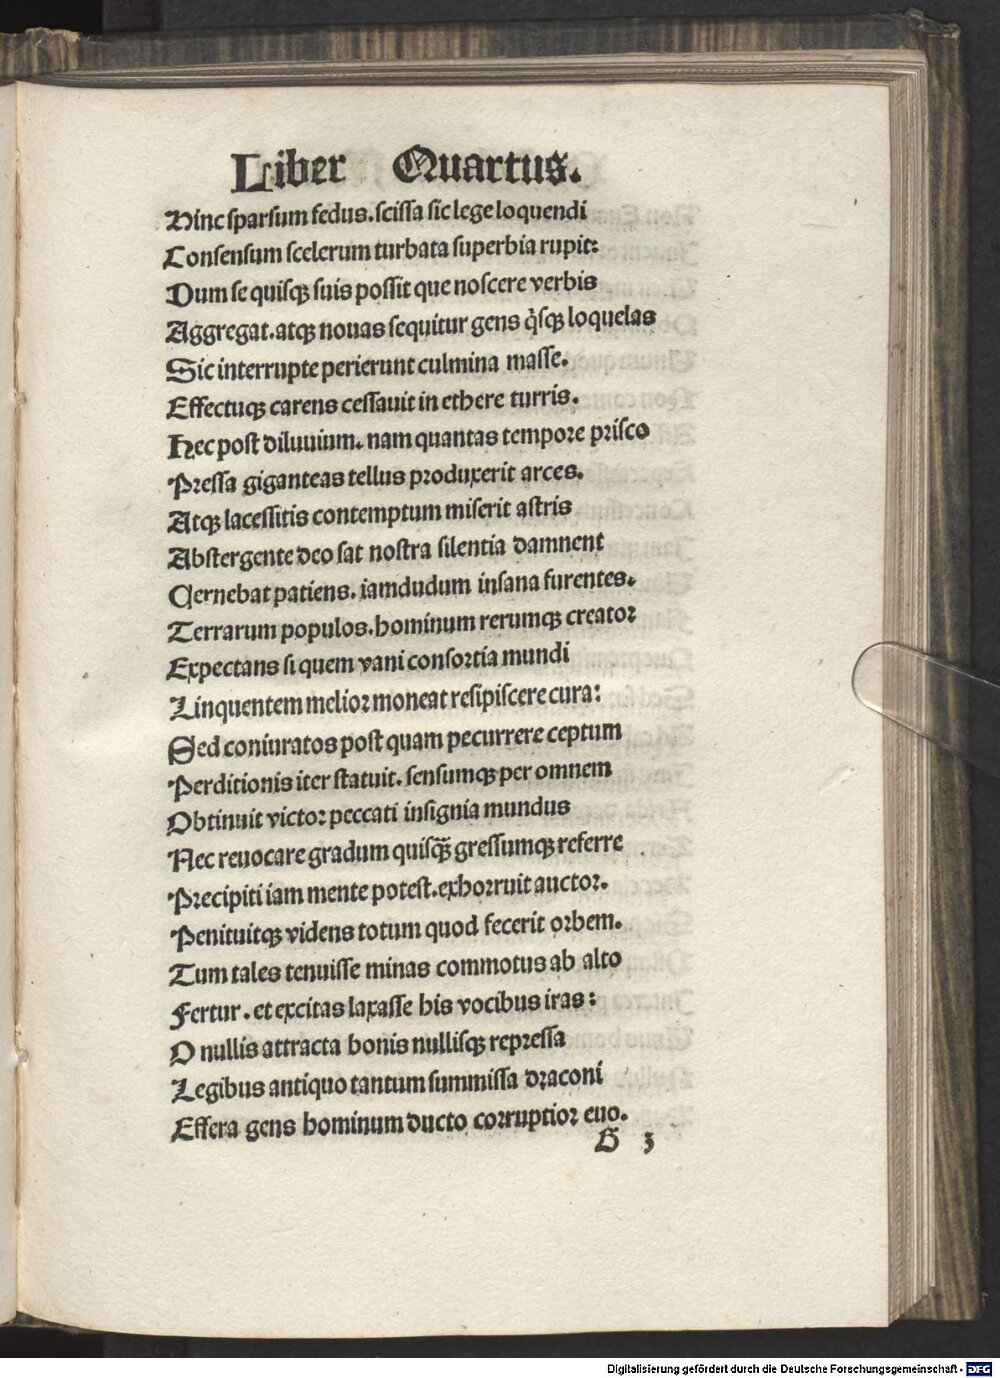 Liber Quartus.
Hinc sparsum fedus. scissa sic lege loquendi
Consensum scelerum turbata superbia rupit:
Dum se quisqꝫ suis possit que noscere verbis
Aggregat. atqꝫ nouas sequitur gens q̇sqꝫ loquelas
Sic interrupte perierunt culmina masse.
Effectuqꝫ carens cessauit in ethere turris.
Hec post diluuium. nam quantas tempore prisco
Pressa giganteas tellus produxerit arces.
Atqꝫ lacessitis contemptum miserit astris
Abstergente deo sat nostra silentia damnent
Cernebat patiens. iamdudum insana furentes.
Terrarum populos. hominum rerumqꝫ creator
Expectans si quem vani consortia mundi
Linquentem melior moneat resipiscere cura:
Sed coniuratos post quam pecurrere ceptum
Perditionis iter statuit. sensumqꝫ per omnem
Obtinuit victor peccati insignia mundus
Nec reuocare gradum quisqꝫ̃ gressumqꝫ referre
Precipiti iam mente potest. exhorruit auctor.
Penituitqꝫ videns totum quod fecerit orbem.
Tum tales tenuisse minas commotus ab alto
Fertur. et excitas laxasse his vocibus iras:
O nullis attracta bonis nullisqꝫ repressa
Legibus antiquo tantum summissa draconi
Effera gens hominum ducto corruptior euo.
G 3
Digitalisierung gefördert durch die Deutsche Forschungsgemeinschaft - DFG